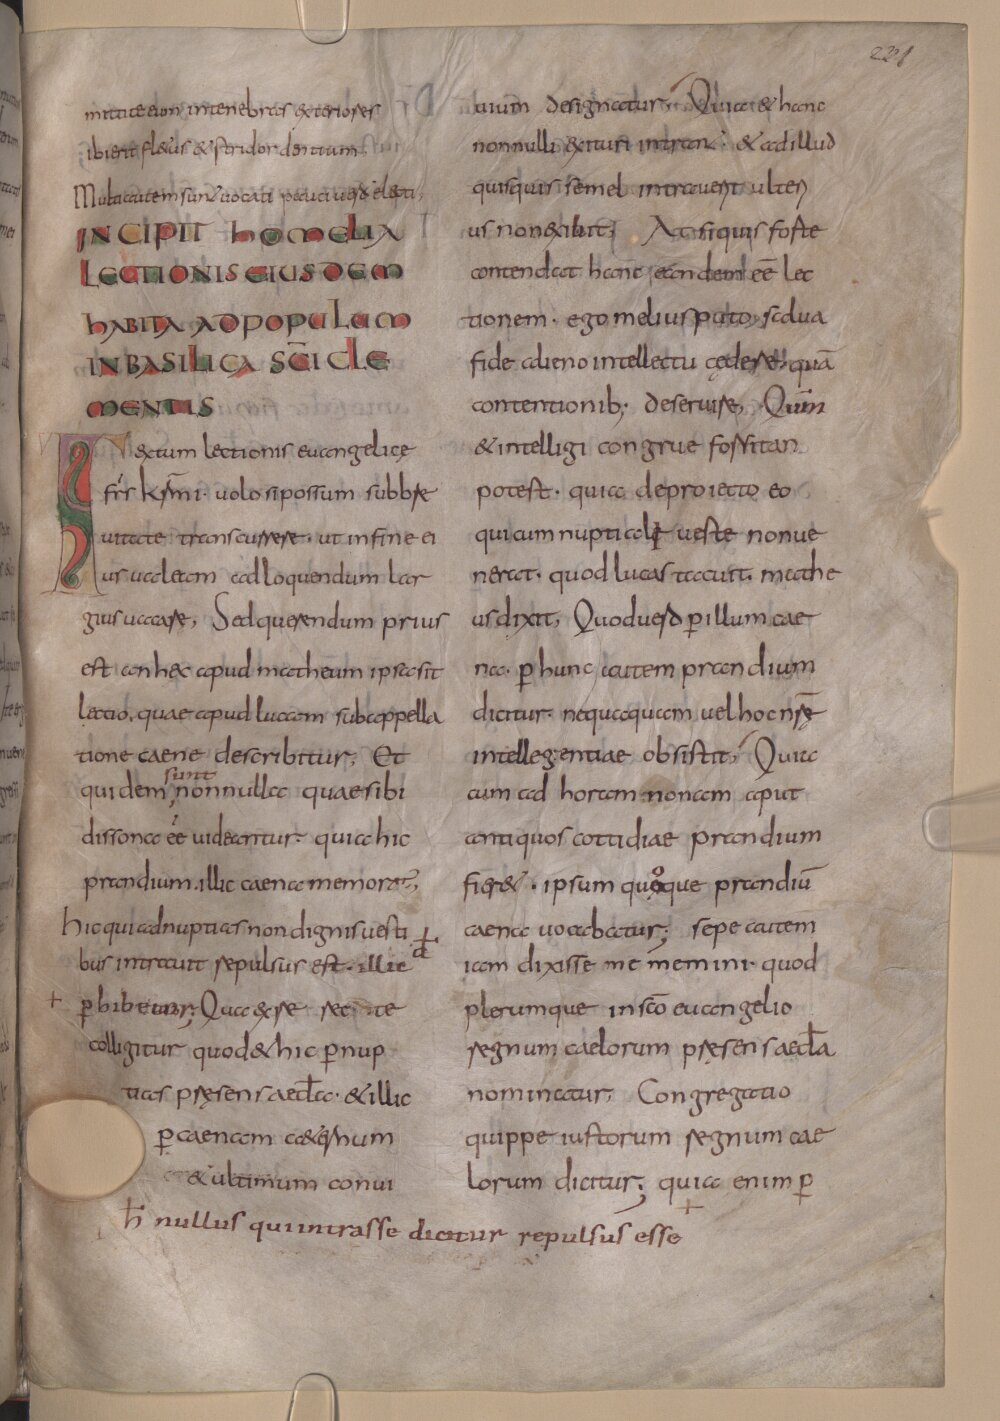 221
mittite eum intenebras exteriores
ibi erit fletus & stridor dentium
Multi autem sunt uocati pauci uero electi,
INCIPIT homelia
LECTIONIS EIUSDEM
hABITA AD POPULUM
IN BASILICA SCI CLE
MENTIS
Textum lectionis euangelicę
frs kmi. uolo sipossum subbre
uitate transcurrere. ut infine ei
us ualeam adloquendum lar
gius uacare, Sed querendum prius
est an hęc apud matheum ipsa sit
lectio, quae apud lucam sub appella
tione caene describitur, Et
quidem sunt nonnulla quae sibi
dissona ee uideantur. quia hic
prandium. illic caena memorat,
hic qui ad nuptias non dignis uesti
bus intrauit repulsus est. illic
phibetur; Qua ex re recte
colligitur quod & hic p nup
tias pręsens aeccla. & illic
p caenam aeternum
& ultimum conui
h nullus qui intrasse dicitur repulsus esse
uium designatur, Quia & hanc
nonnulli exituri intrant. & ad illud
quisquis semel intrauerit ulteri
us non exibit, At siquis forte
contendat hanc eandem ee lec
tionem. ego melius puto salua
fide alieno intellectu cędere, quā
contentionib; deseruire, Qum
& intelligi congrue forsitan
potest. quia de proiecto eo
qui cum nuptiali ueste non ue
nerat. quod lucas tacuit. mathe
us dixit, Quod uero p illum cae
na. p hunc autem prandium
dicitur. nequaquam uel hoc nrę
intellegentiae obsistit, Quia
cum ad horam nonam aput
antiquos cottidiae prandium
fieret. ipsum quoque prandiū
caena uocabatur; sepe autem
iam dixisse me memini. quod
plerumque in sco euangelio
regnum caelorum pręsens aeccla
nominatur, Congregatio
quippe iustorum regnum cae
lorum dicitur; quia enim p